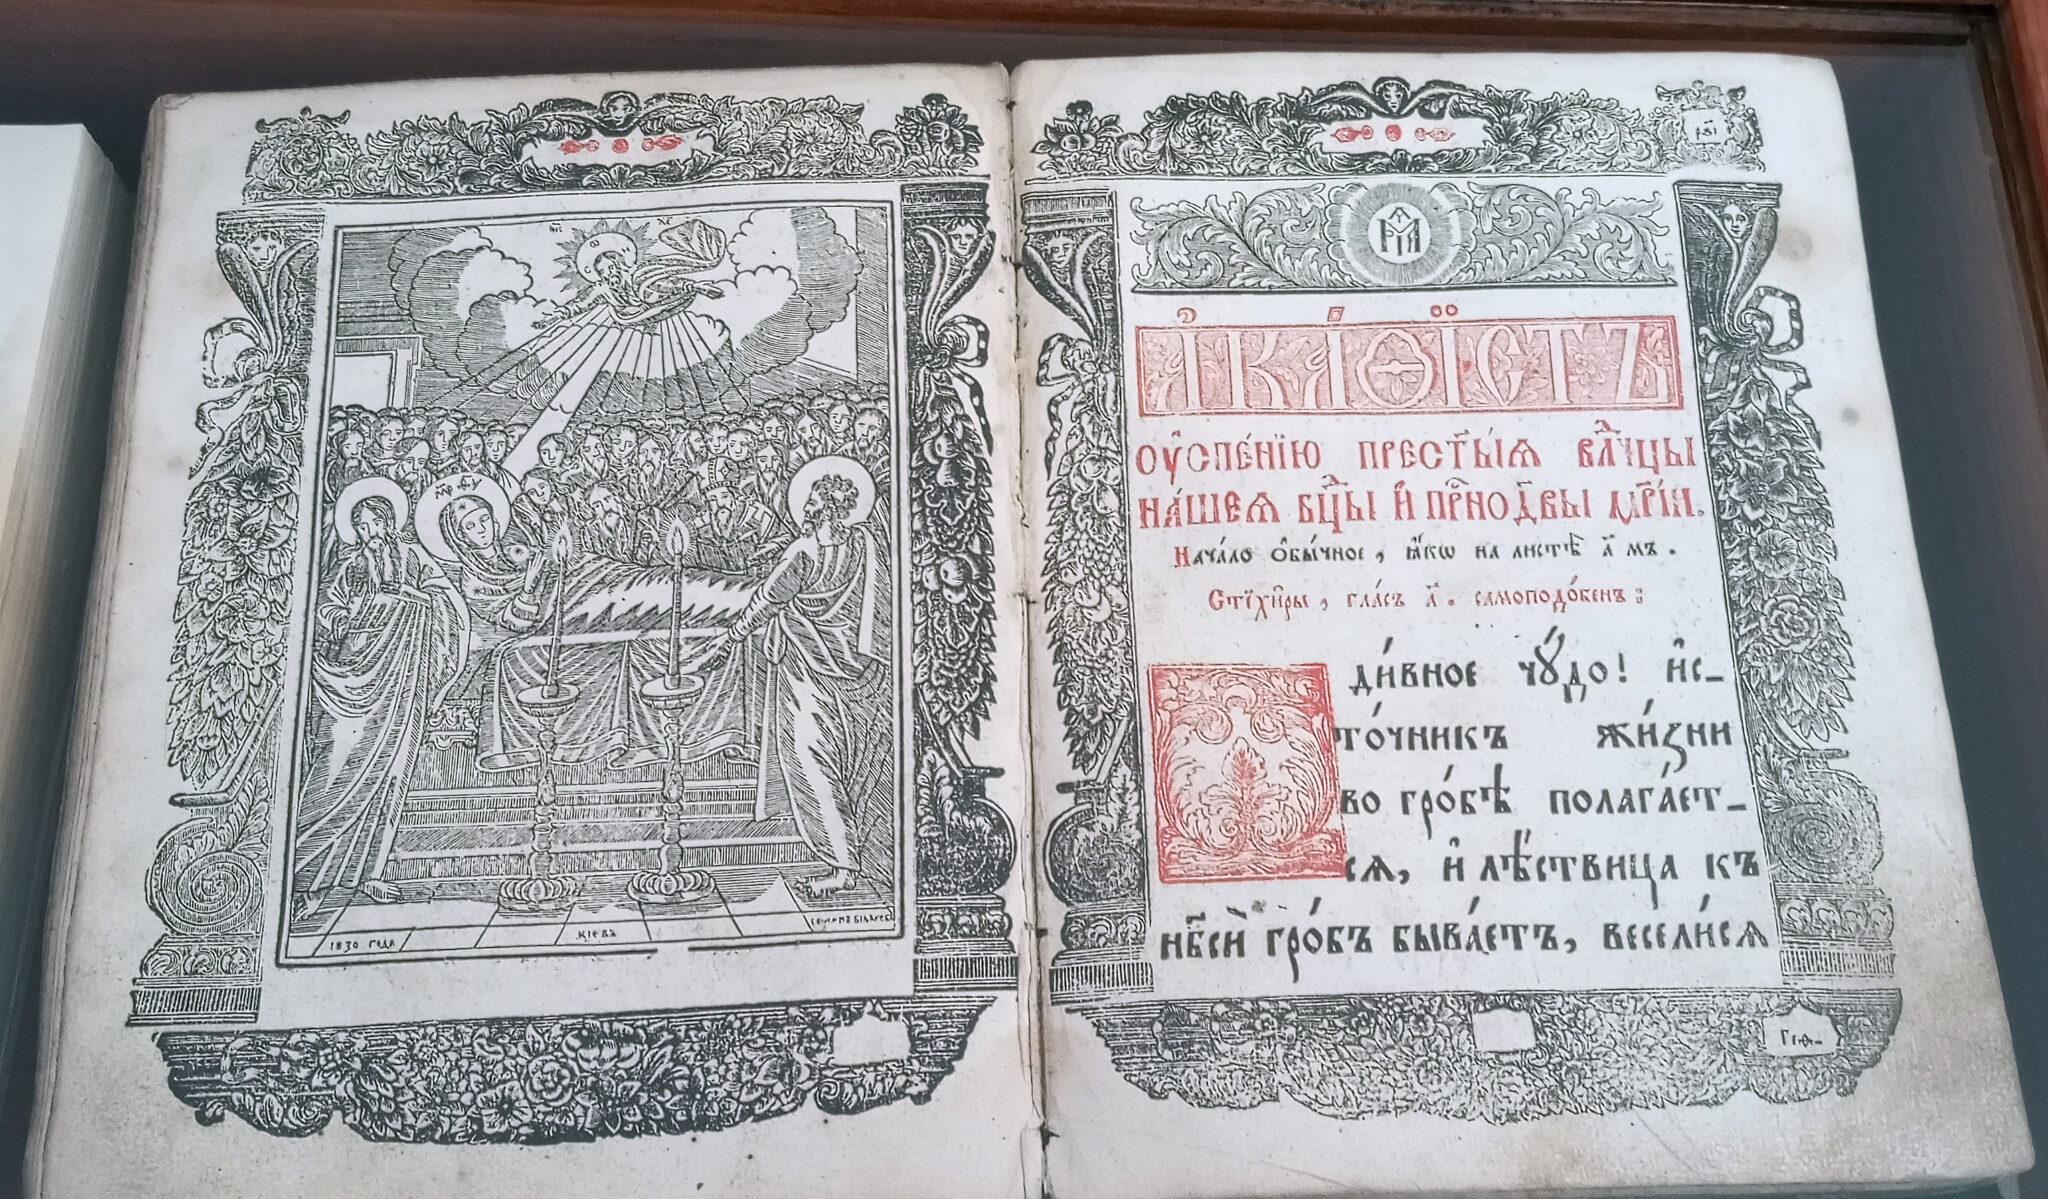 ІИС ХС
МР ѲУ
1830 ГОДА
КІЕВЪ
МРІЯ
АКАѲІСТЪ
ОУ҆СПЕ́НЇЮ ПРЕСТ҃Ы́Ѧ ВЛⷣЧЦЫ
НА́ШЕѦ БЦⷣЫ И҆ ПРⷭ҇НОДВ҃Ы МР҃ІИ.
Нача́ло ѻ҆бы́чное, ꙗ҆́кѡ на листѣ̀ а҃ мъ.
Стїхи̑ры, гла́съ а҃. самоподо́бенъ:
ди́вное чꙋ́до! и҆с_
то́чникъ жи́зни
во гро́бѣ полага́ет_
сѧ, и҆ лѣ́ствица къ
нб҃сѝ гро́бъ быва́етъ, весели́сѧ